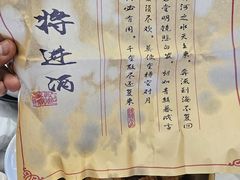 河之水天上来，奔流到海不复回
堂明镜悲白发，朝如青丝暮成雪
须尽欢，莫使金樽空对月
必有用，千金散尽还复来
将进酒